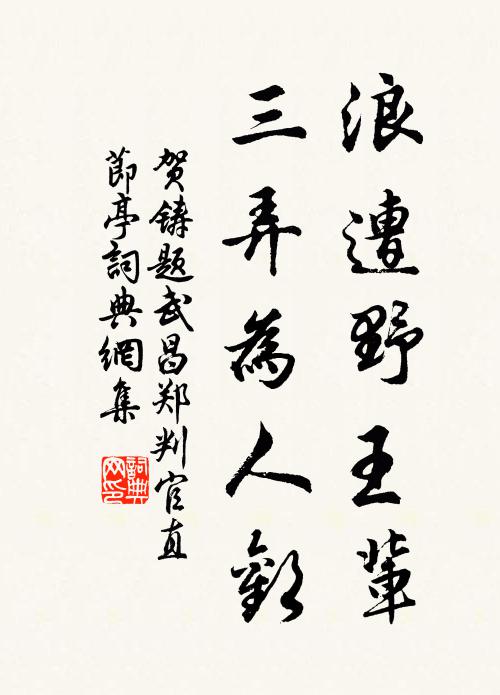 浪遭野王輩
三弄為人歡
贺鑄题武昌郑判官直
節亭詞典網集
詞典
网印